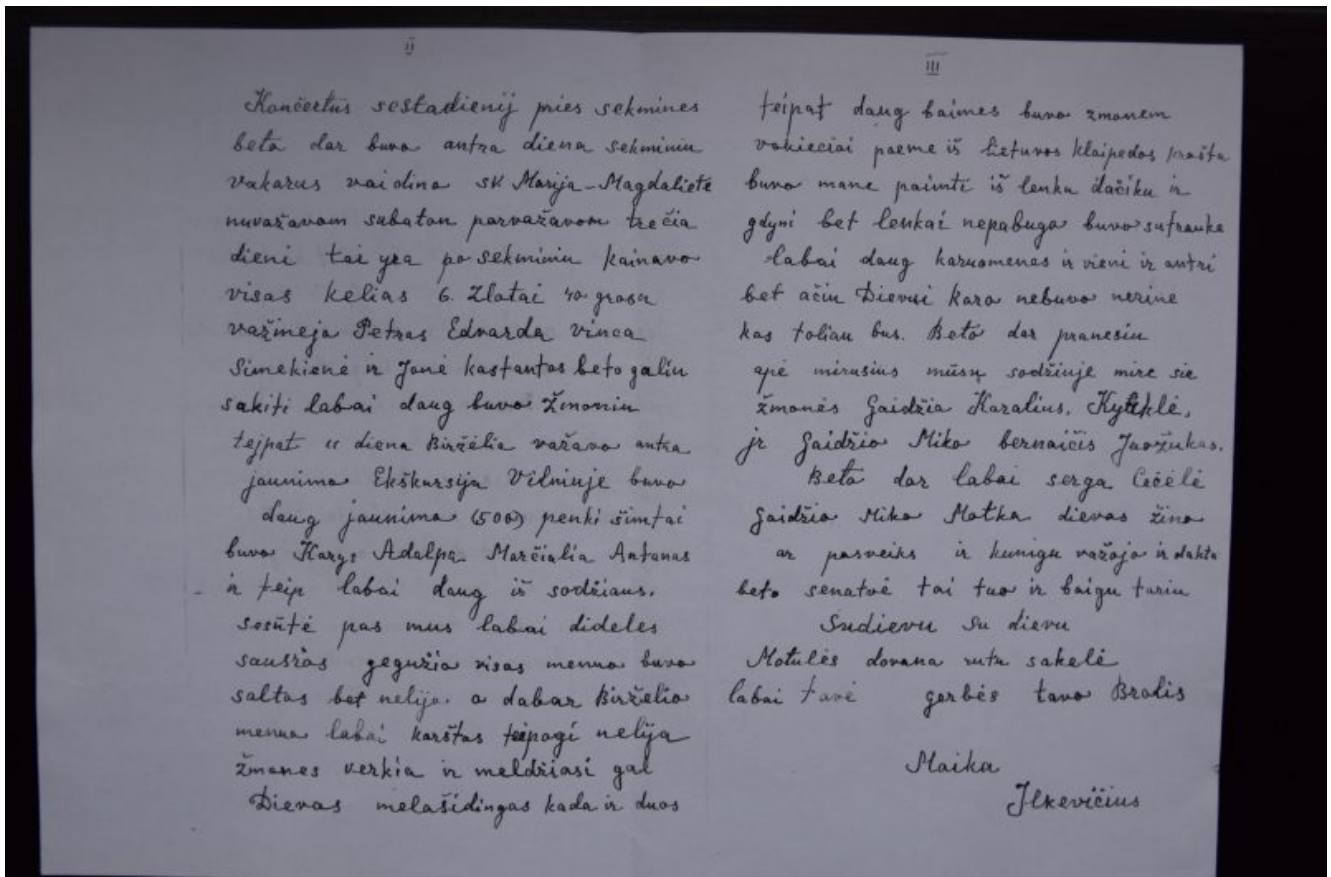 II
Končertus sestadienij pries sekmines
beto dar buvo antra diena sekminiu
vakarus vaidina sv Marija-Magdalietė
nuvažavom subaton parvažavom trečia
dieni tai yra po sekminiu kainavo
visas kelias 6. Zlatai 40 grošu
važineja Petras Edvarda vinca
Simekienė ir Jonė kastantos beto galiu
sakiti labai daug buvo Žmoniu
tejpat 11 diena Birželia važavo antra
jaunima Ekškursija Vilniuje buvo
daug jaunima (500) penki šimtai
buvo Karys Adalpa Marčialia Antanas
ir teip labai daug iš sodžiaus.
sesūtė pas mus labai dideles
sausžas gegužia visas menuo buvo
saltas bet nelija. o dabar Birželio
menuo labai karštas teipogi nelija
žmones verkia ir meldžiasi gal
Dievas melašidingas kada ir duos
III
teipat daug baimes buvo zmonem
vokieciai paeme iš Lietuvos klaipedos
buvo mane paimti iš lenku dačiku ir
gdyni bet lenkai nepabuga buvo sutrauke
labai daug karuomenes ir vieni ir antri
bet ačiu Dievui karo nebuvo nezine
kas toliau bus. Beto dar pranesiu
apė mirusius mūsų sodžiuje mirė sie
žmonės Gaidžia Karalius, Kyteklė,
jr Gaidžio Miko bernaičis Juozukas.
Beto dar labai serga Cečėlė
Gaidžio Miko Motka dievas žino
ar pasveiks ir kunigu važojo ir dakta
beto senatvė tai tuo ir baigu tariu
Sudievu su dievu
Motulės dovana rutu sakelė
labai tavė gerbės tavo Brolis
Maika
Jlkevičius